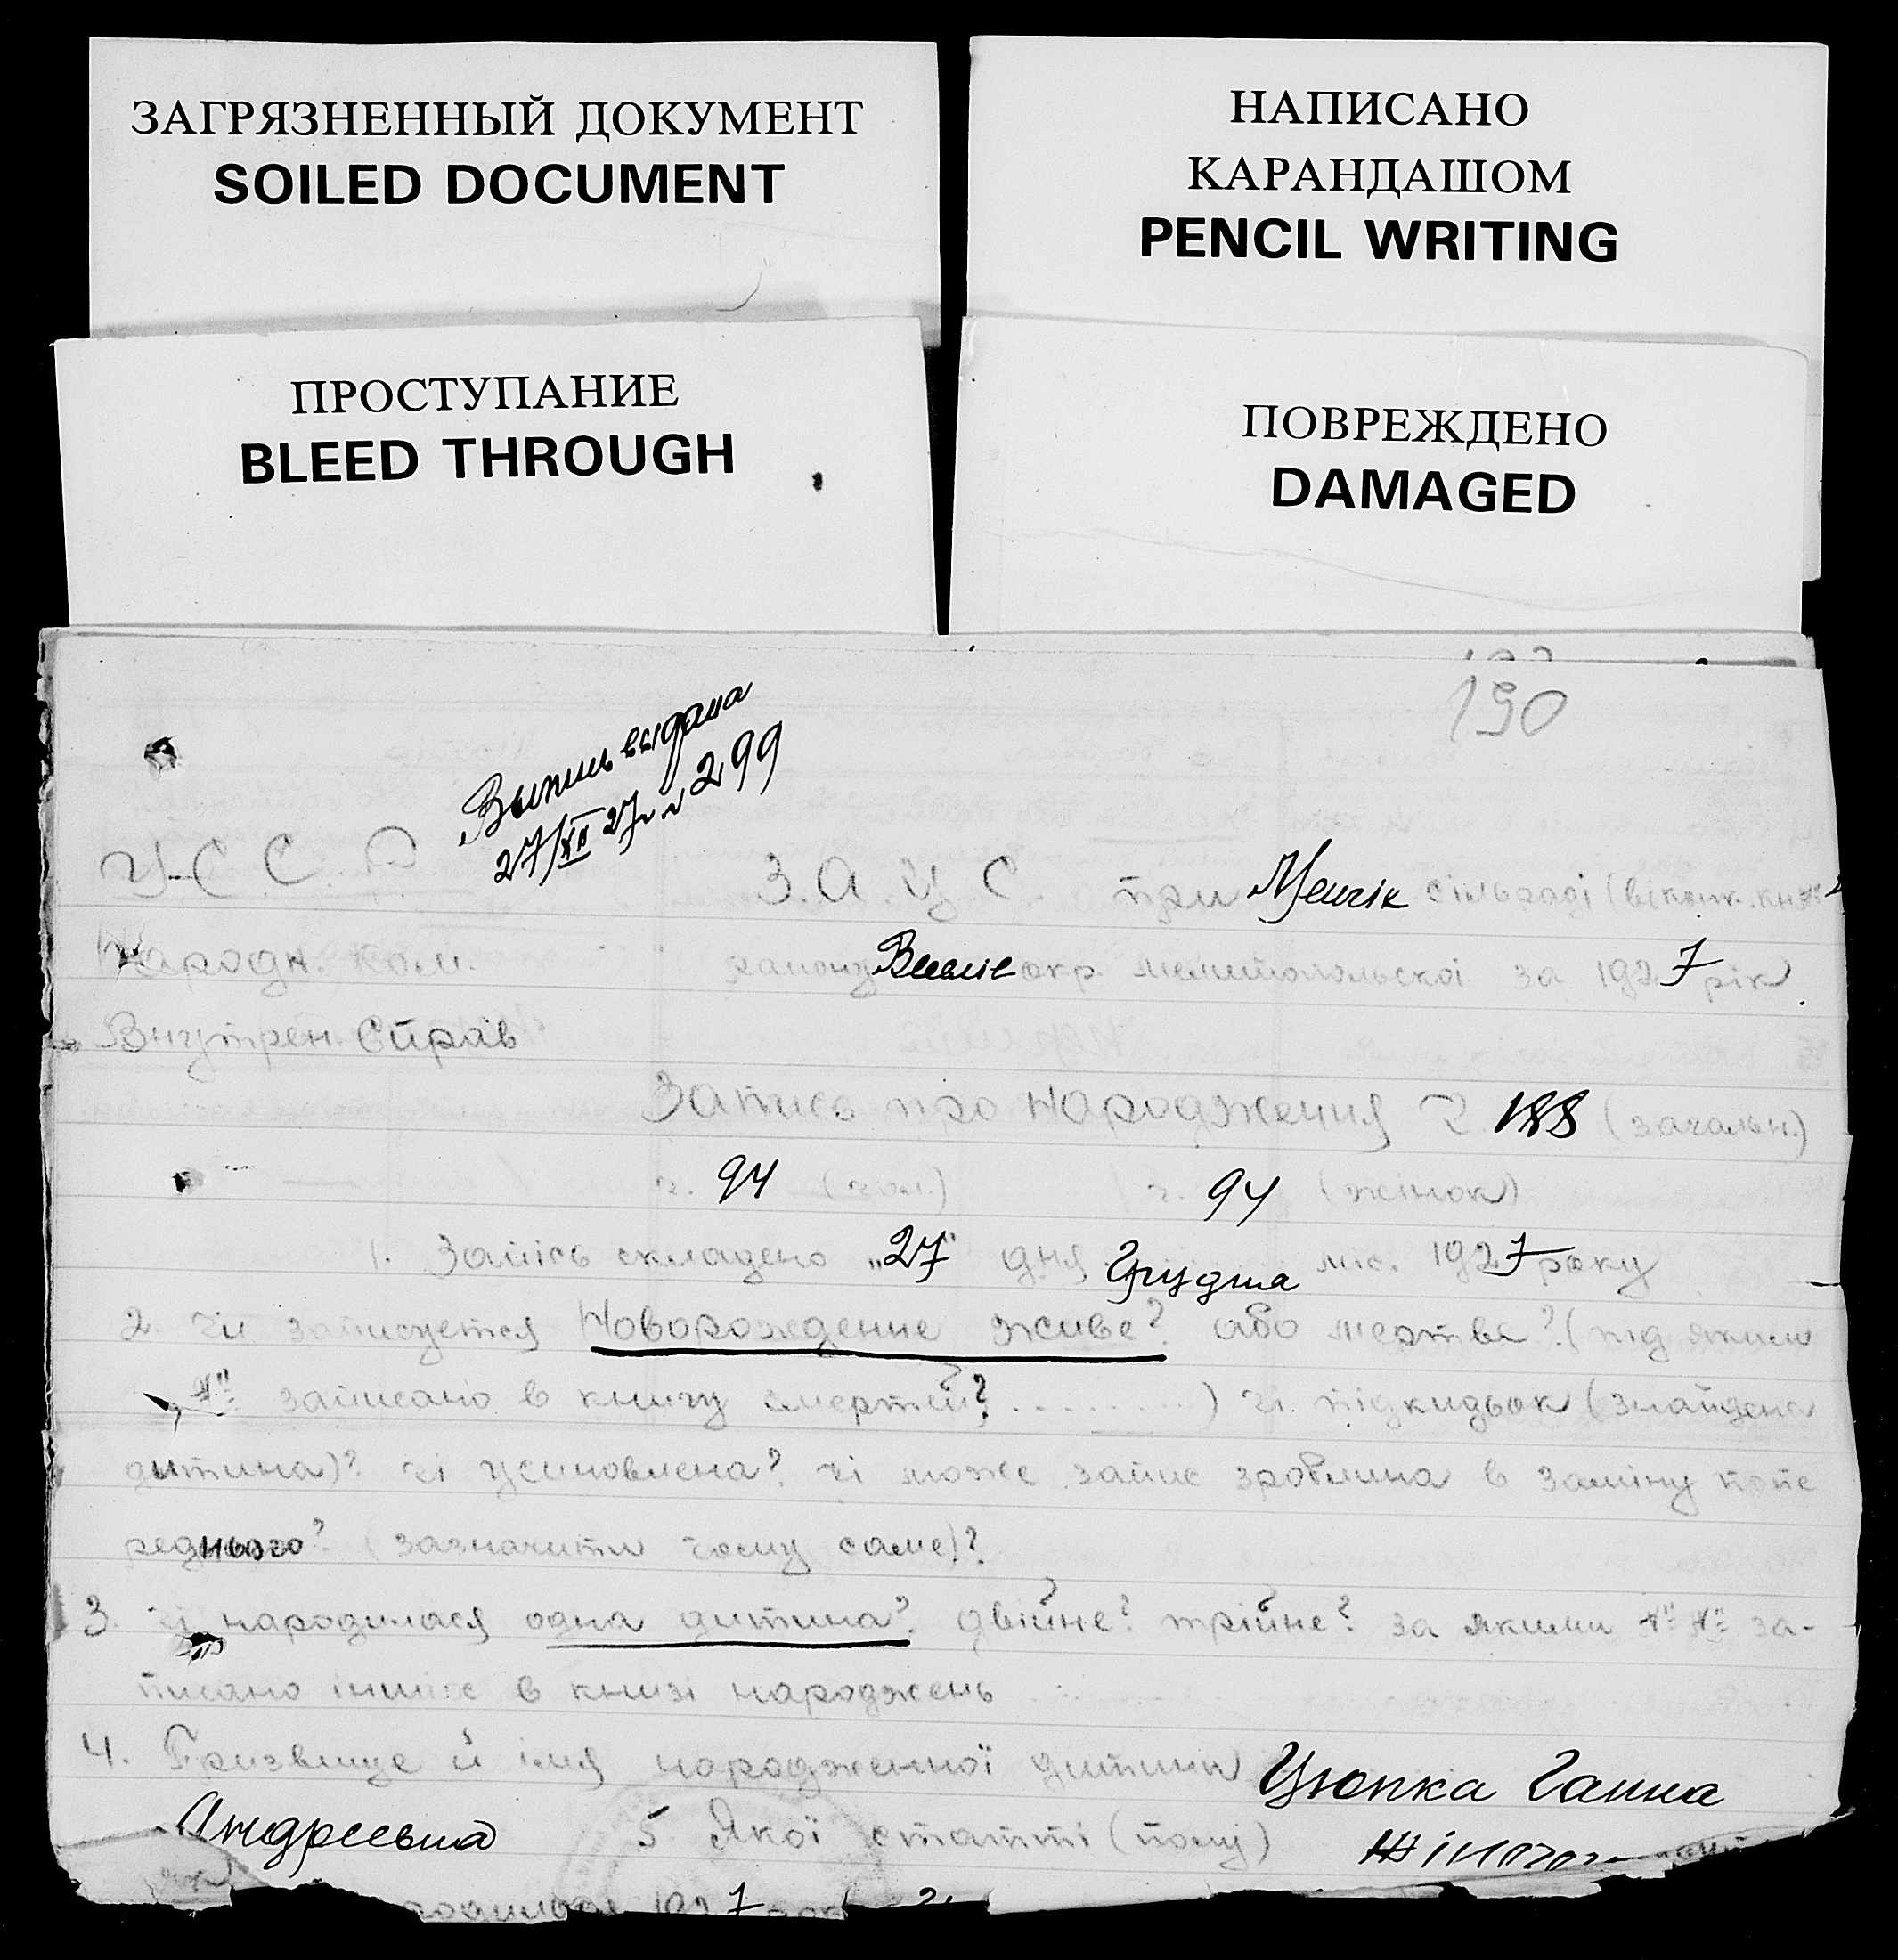 ЗАГРЯЗНЕННЫЙ ДОКУМЕНТ
SOILED DOCUMENT
НАПИСАНО
КАРАНДАШОМ
PENCIL WRITING
ПРОСТУПАНИЕ
BLEED THROUGH
ПОВРЕЖДЕНО
DAMAGED
190
Выпись выдана
27/XII 27 г № 299
У.С.С.Р.
З.А.Г.С. при сільраді
Народн. Ком.
району окр. мелитопольскоі за 1927 рік
Внутрен. Справ
Запись про народження Ч. 188 (загальн.)
ч. 94 (чол.) ч. 94 (жінок)
1. Запісь складено „27" дня Грудня міс. 1927 року
2. Чи записуется Новорожденне живе? або мертве? (під яким
№ записано в книгу смертей? ........) чі підкидьок (знайдена
дитина)? чі усиновлена? чі може запис зроблина в заміну попе
реднього? (зазначити чому саме)?
3. чі народилася одна дитина? двійне? трійне? за якими №№ за-
писано інших в книзі народжень
4. Призвище й імя народженної дитини Цюпка Ганна
Андреевна 5 Якоі статті (полу) Жіночої
1927